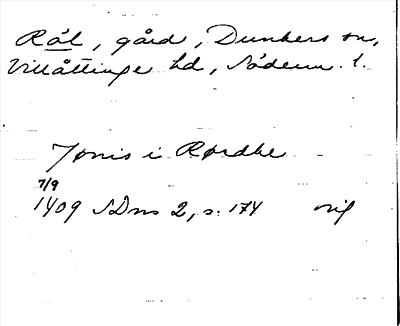 Rål, gård, Dunkers sn,
Villåttinge hd, Söderm. l.
Jønis i Rørdhe
7/9
1409 SDns 2, s. 174 orig